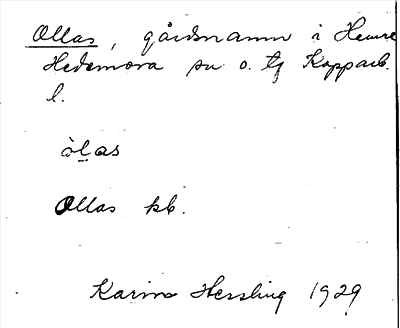 Ollas, gårdsnamn i
Hedemora sn o. tg Kopparb.
l.
òlas
Ollas kb.
Karin Hessling 1929